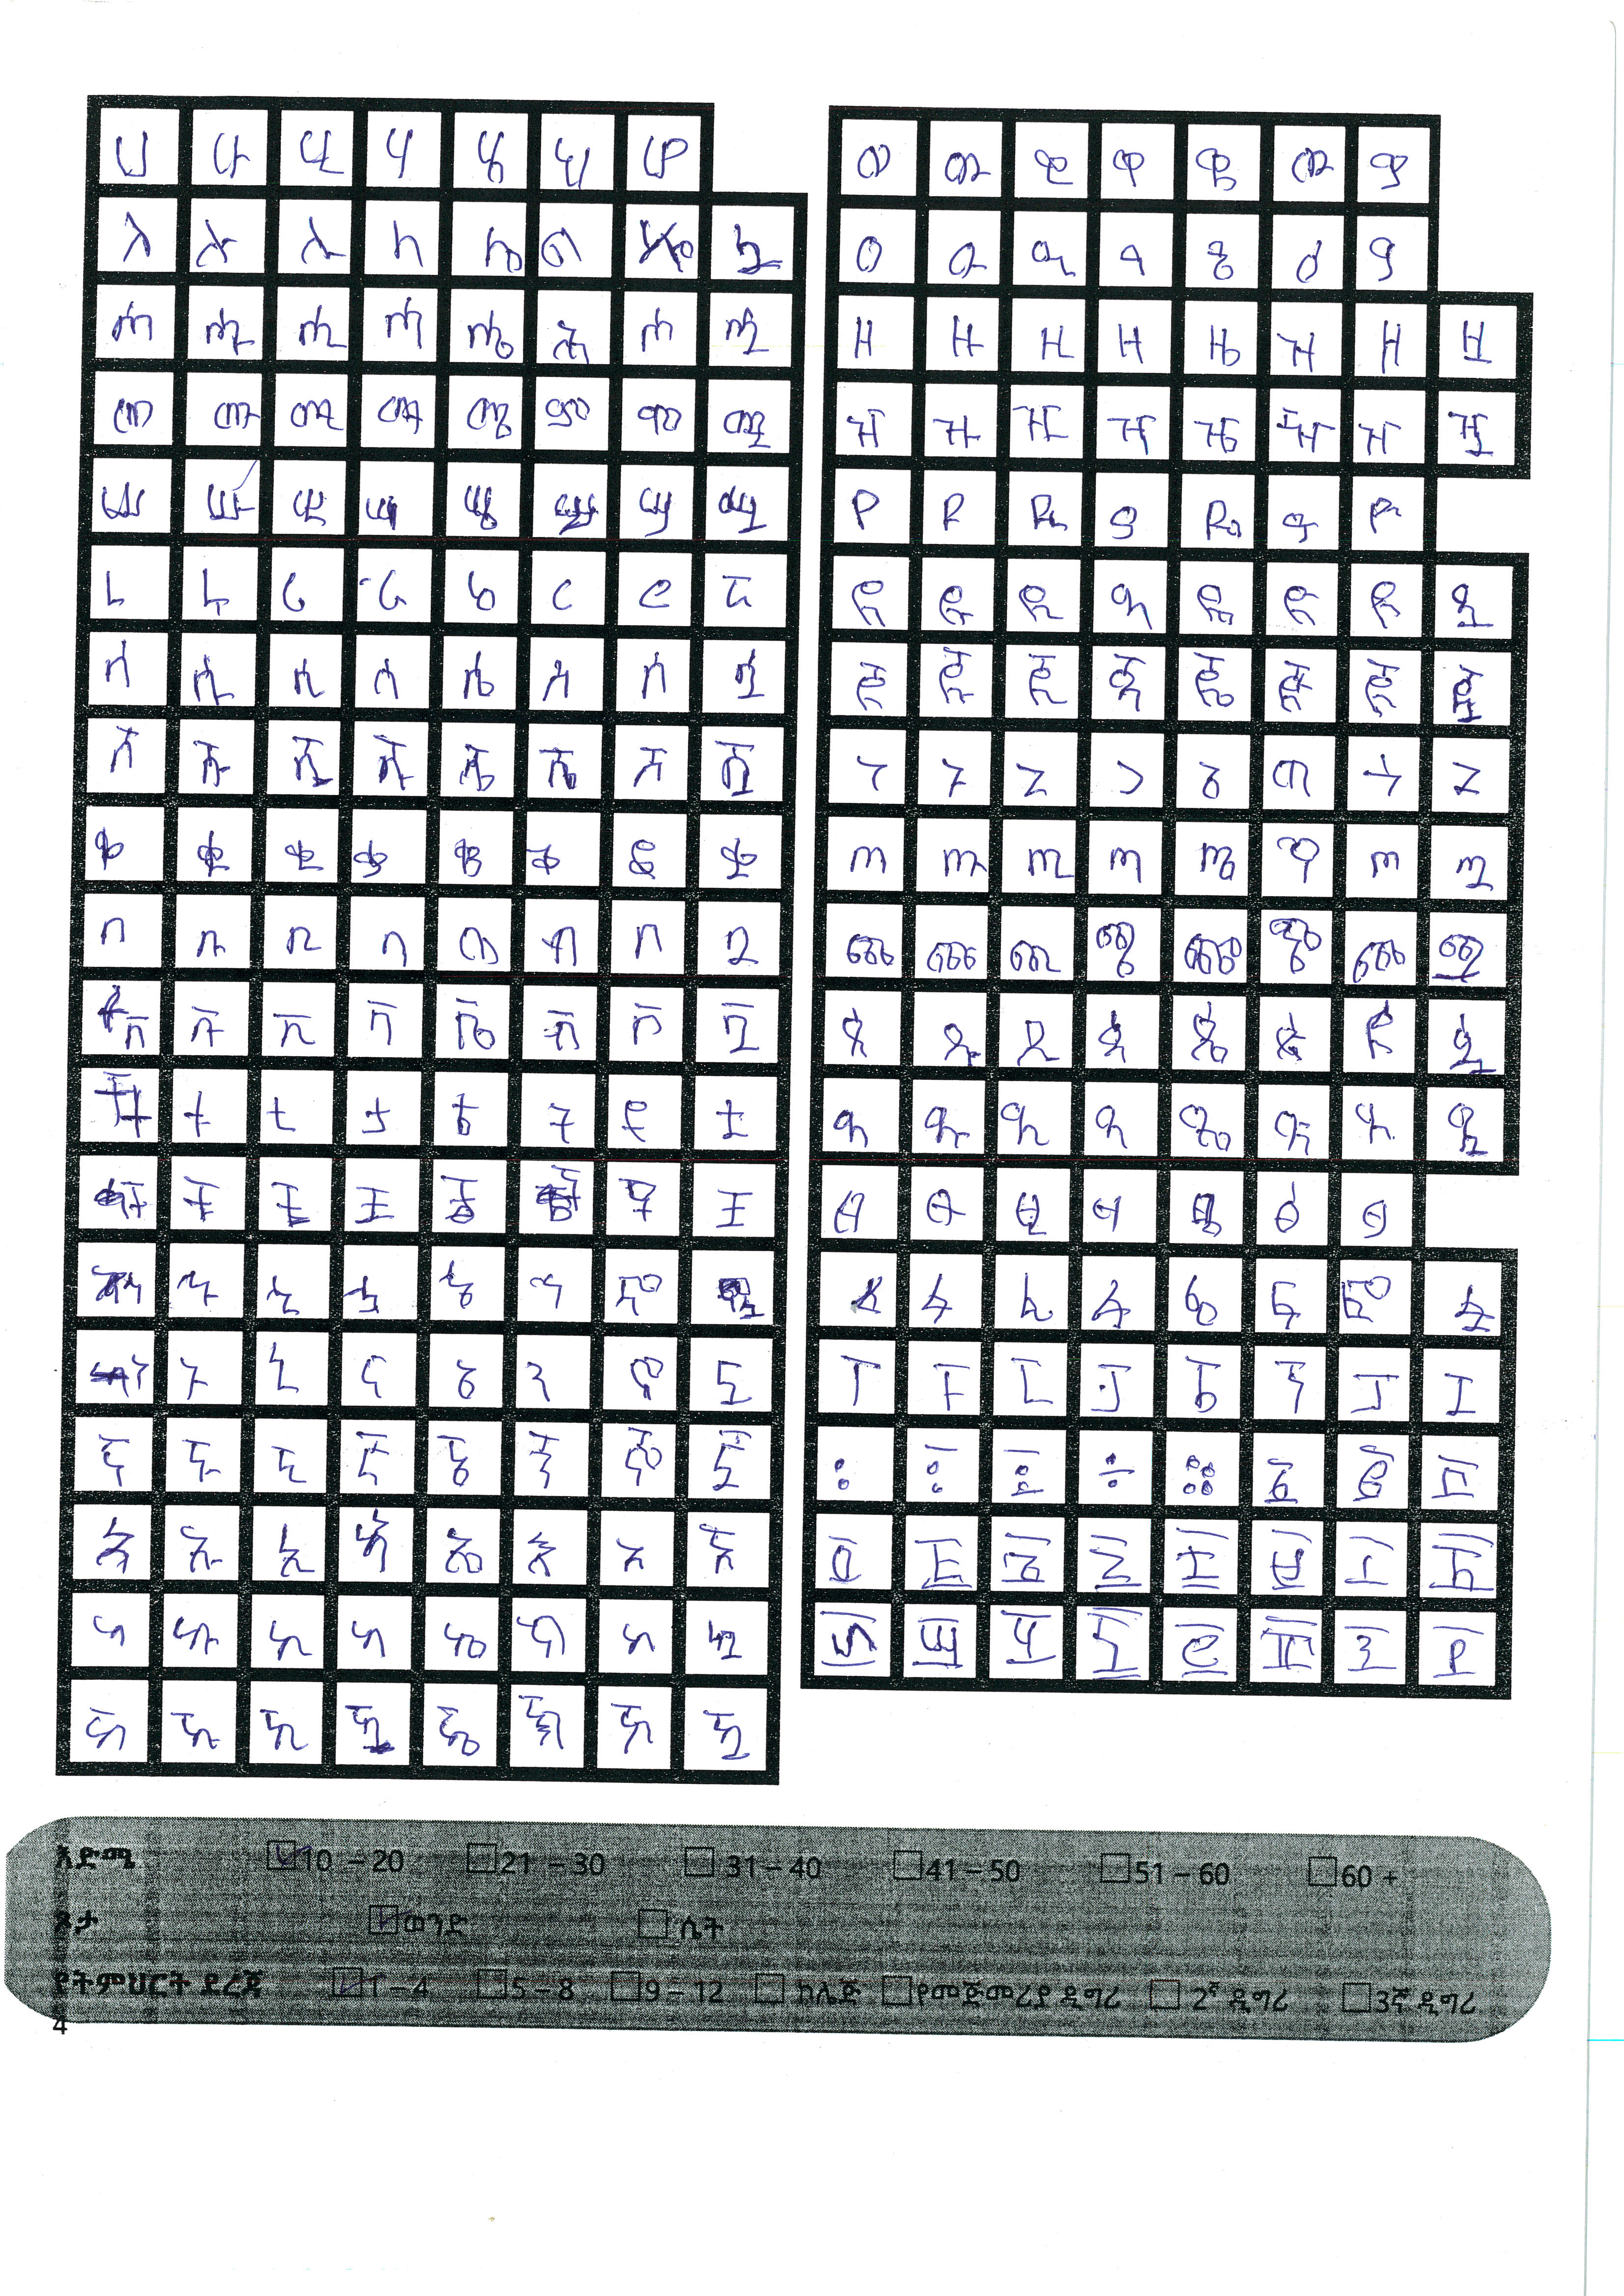 ሀ ሁ ሂ ሃ ሄ ህ ሆ
ለ ሉ ሊ ላ ሌ ል ሏ
ሐ ሑ ሒ ሓ ሔ ሕ ሐ ሗ
መ ሙ ሚ ማ ሜ ም ሞ ሟ
ሠ ሡ ሢ ሣ ሤ ሥ ሧ
ረ ሩ ሪ ራ ሬ ር ሮ ሯ
ሰ ሱ ሲ ሳ ሴ ስ ሰ ሷ
ሸ ሹ ሺ ሻ ሼ ሸ ሿ
ቀ ቁ ቂ ቃ ቄ ቅ ቆ ቋ
በ ቡ ቢ ባ ቤ ብ በ ቧ
ቨ ቩ ቪ ቫ ቬ ቭ ቮ ቯ
ቱ ቲ ታ ቴ ት ቶ ቷ
ቸ ቹ ቺ ቻ ቼ ቾ ቿ
ኁ ኂ ኃ ኄ ኅ ኆ ኋ
ነ ኑ ኒ ና ኔ ን ኖ ኗ
ኘ ኙ ኚ ኛ ኜ ኝ ኞ ኟ
አ ኡ ኢ ኣ ኤ እ ኧ
ከ ኩ ኪ ካ ኬ ክ ኳ
ኸ ኹ ኺ ዃ ኼ ኽ ዃ
ወ ዉ ዊ ዋ ዌ ው ዎ
ዐ ዑ ዒ ዓ ዔ ዕ ዖ
ዘ ዙ ዚ ዛ ዜ ዝ ዞ ዟ
ዠ ዡ ዢ ዣ ዤ ዥ ዠ ዧ
የ ዩ ዪ ያ ዬ ይ ዮ
ደ ዱ ዲ ዳ ዴ ድ ዶ ዷ
ጀ ጁ ጂ ጃ ጄ ጅ ጆ ጇ
ገ ጉ ጊ ጋ ጌ ግ ጎ ጓ
ጠ ጡ ጢ ጣ ጤ ጥ ጠ ጧ
ጨ ጩ ጪ ጫ ጬ ጭ ጨ ጯ
ጰ ጱ ጲ ጳ ጴ ጵ ጶ ጷ
ጸ ጹ ጺ ጻ ጼ ጽ ጾ ጿ
ፀ ፁ ፂ ፃ ፄ ፅ ፆ
ፈ ፉ ፊ ፋ ፌ ፍ ፎ ፏ
ፐ ፑ ፒ ፓ ፔ ፕ ፖ ፗ
፡ ፣ ፤ ÷ ። ፩ ፪ ፫
፬ ፭ ፮ ፯ ፰ ፱ ፲ ፳
፴ ፵ ፶ ፷ ፸ ፹ ፺ ፻
እድሜ 10 – 20 21 – 30 31 – 40 41 – 50 51 – 60 60 +
ጾታ ወንድ ሴት
የትምህርት ደረጃ 1 – 4 5 – 8 9 – 12 ኮሌጅ የመጅመሪያ ዲግሪ 2ኛ ዲግሪ 3ኛ ዲግሪ
4